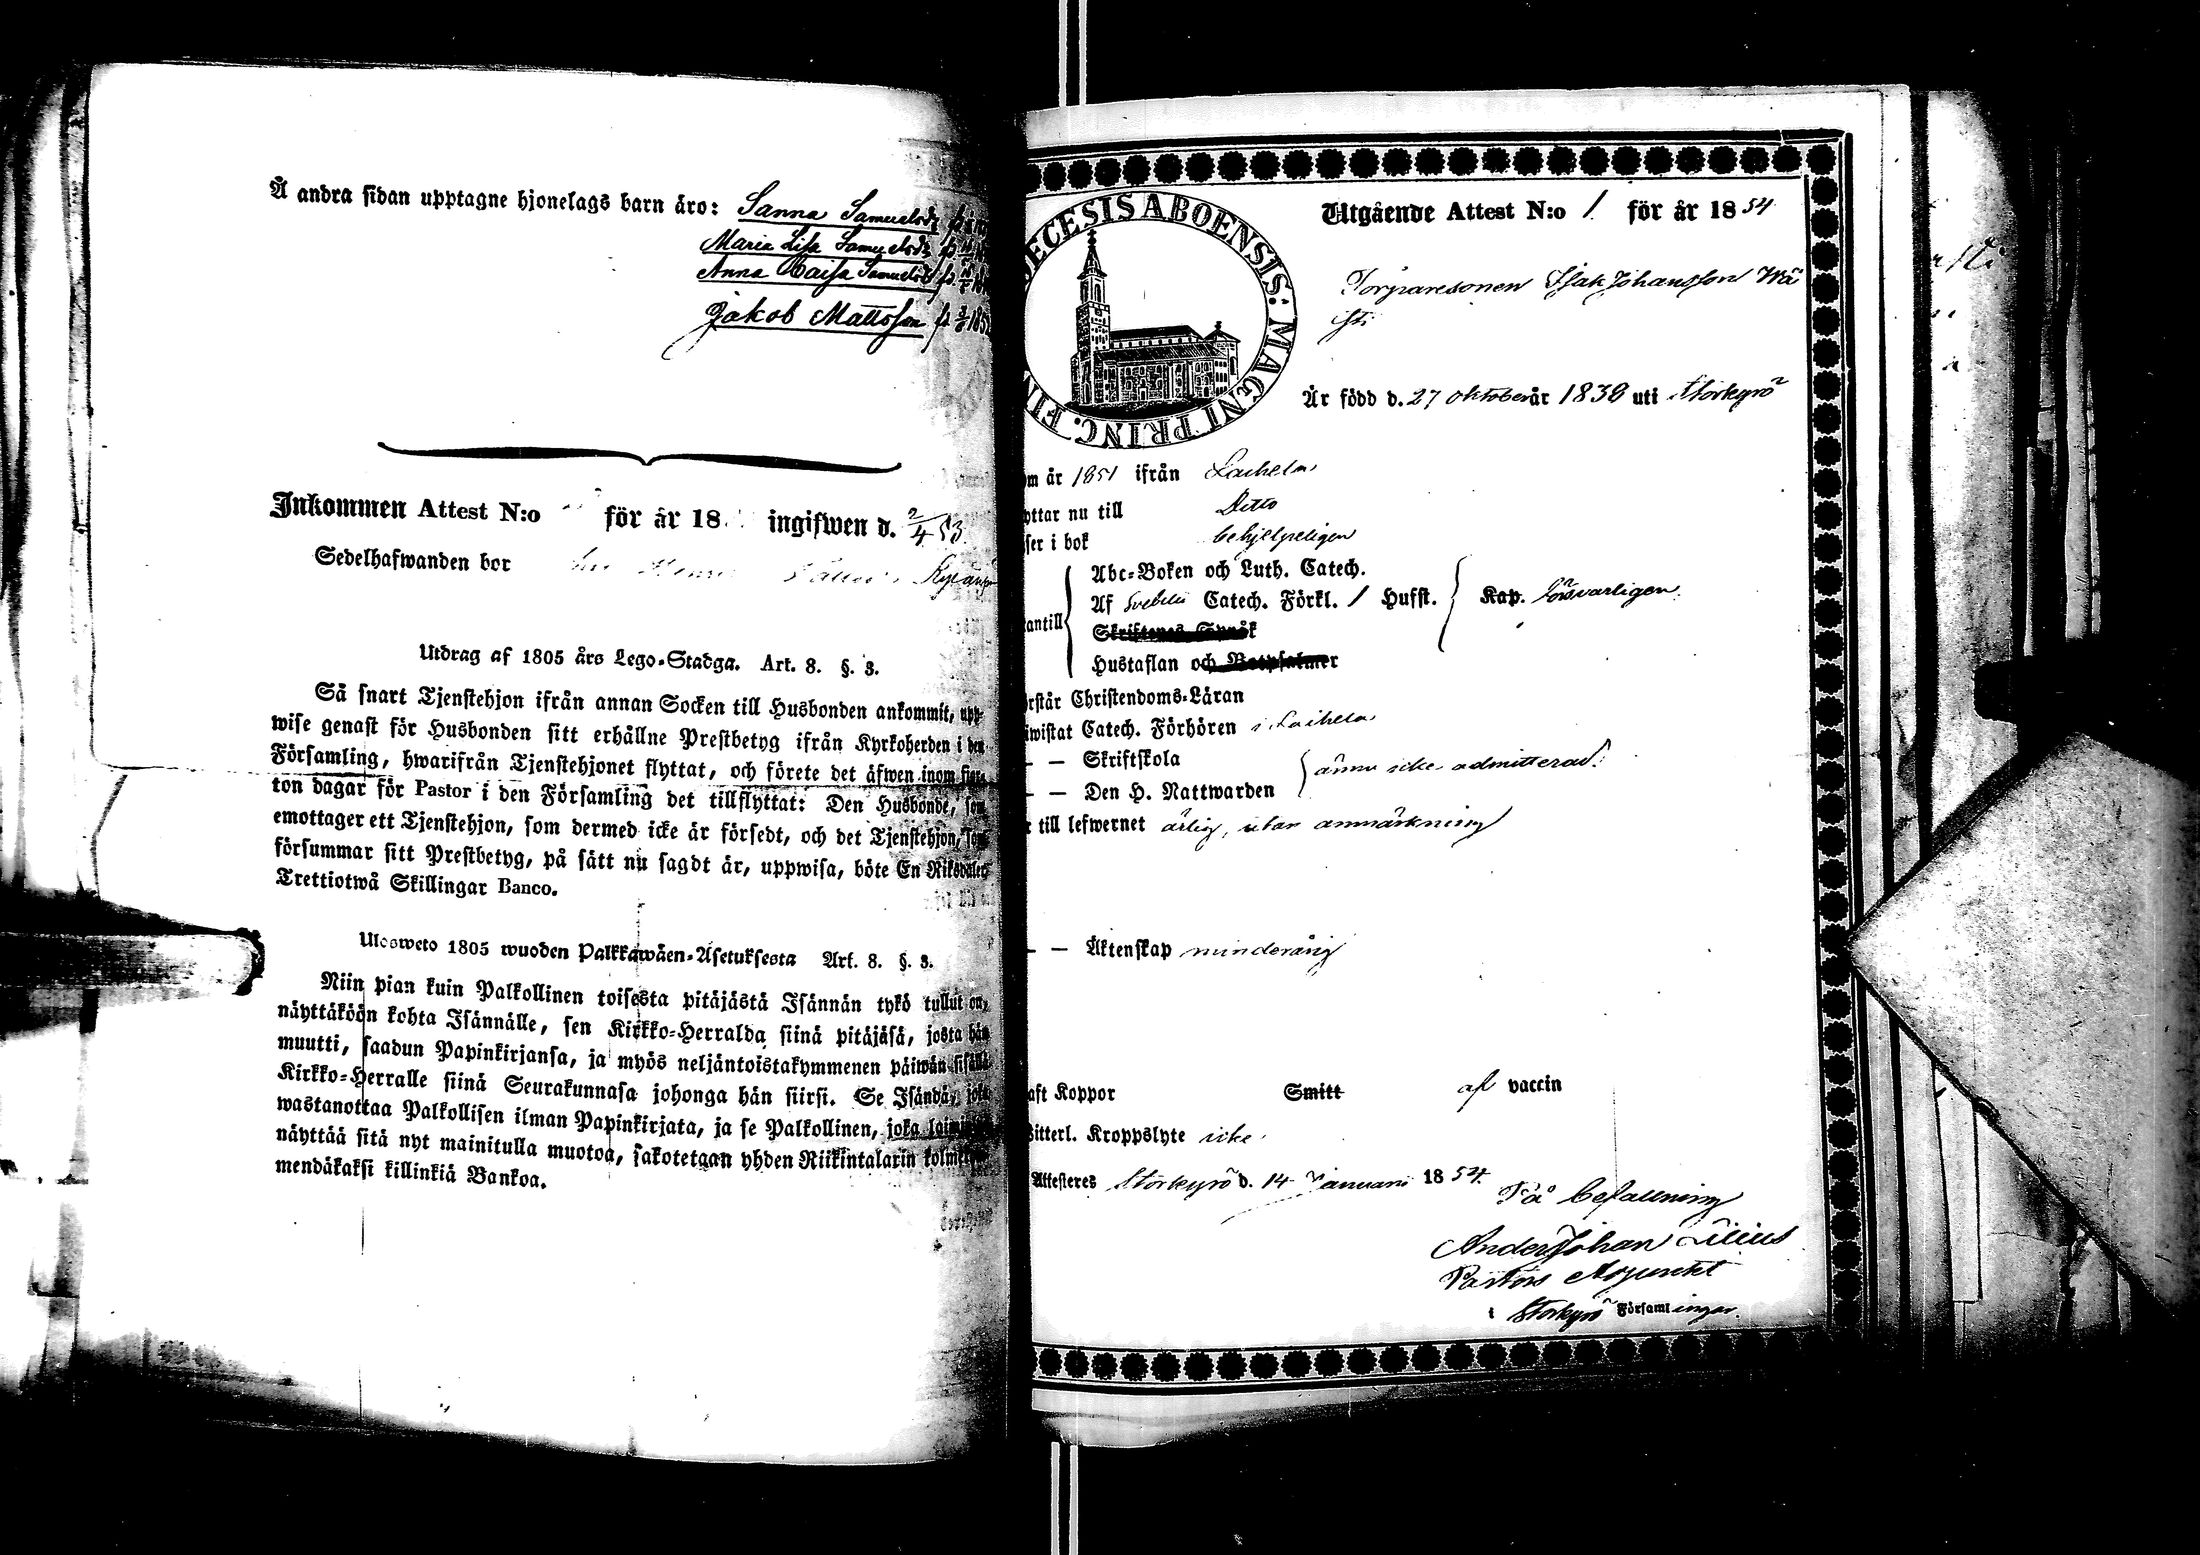 Å andra sidan upptagne hjonelags barn äro: Sanna Samuelsdr f.
Maria Lisa Samuelsdr f.
Anna Caisa Samuelsdr f.
Jakob Mattsson f. 1852
Inkommen Attest N:o för år 18 ingifwen d. 2/4 53
Sedelhafwanden bor
Utdrag af 1805 års Lego-Stadga. Art. 8. §. 3.
Så snart Tjenstehjon ifrån annan Socken till Husbonden ankommit, upp-
wise genast för Husbonden sitt erhållne Prestbetyg ifrån Kyrkoherden i den
Församling, hwarifrån Tjenstehjonet flyttat, och förete det äfwen inom fjor-
ton dagar för Pastor i den Församling det tillflyttat: Den Husbonde, som
emottager ett Tjenstehjon, som dermed icke är försedt, och det Tjenstehjon, som
försummar sitt Prestbetyg, på sätt nu sagdt är, uppwisa, böte En Riksdaler
Trettiotwå Skillingar Banco.
Ulosweto 1805 wuoden Palkkawäen-Asetuksesta Art. 8. §. 3.
Niin pian kuin Palkollinen toisesta pitäjästä Isännän tykö tullut on,
näyttäköön kohta Isännälle, sen Kirkko-Herralda siinä pitäjäsä, josta hän
muutti, saadun Papinkirjansa, ja myös neljäntoistakymmenen päiwän sisällä
Kirkko-Herralle siinä Seurakunnasa johonga hän siirsi. Se Isändä, joka
wastanottaa Palkollisen ilman Papinkirjata, ja se Palkollinen, joka laimin
näyttää sitä nyt mainitulla muotoa, sakotetaan yhden Riikintalarin kolmeky
mendäkaksi killinkiä Bankoa.
DIOECESIS ABOENSIS: MAGNI PRINC. FIN
Utgående Attest N:o 1 för år 1854
Torparesonen Isak Johansson Wä
isti
Är född d. 27 oktober år 1838 uti Storkyrö
om år 1851 ifrån Laihela
yttar nu till Ditto
ser i bok behjelpeligen
Abc-Boken och Luth. Catech.
antill Af Svebelii Catech. Förkl. 1 Hufst. Kap. försvarligen
Skriftenes Språk
Hustaflan och Botpsalmer
rstår Christendoms-Läran
iwistat Catech. Förhören i Laihela
— — Skriftskola
ännu icke admitterad.
— — Den H. Nattwarden
r till lefwernet ärlig, utan anmärkning
— — Äktenskap minderårig
aft Koppor Smitt af vaccin
itterl. Kroppslyte icke
Attesteres Storkyrö d. 14 Januari 1854.
På befallning
Anders Johan Lilius
Pastors Adjunckt
i Storkyrö Församlingar.